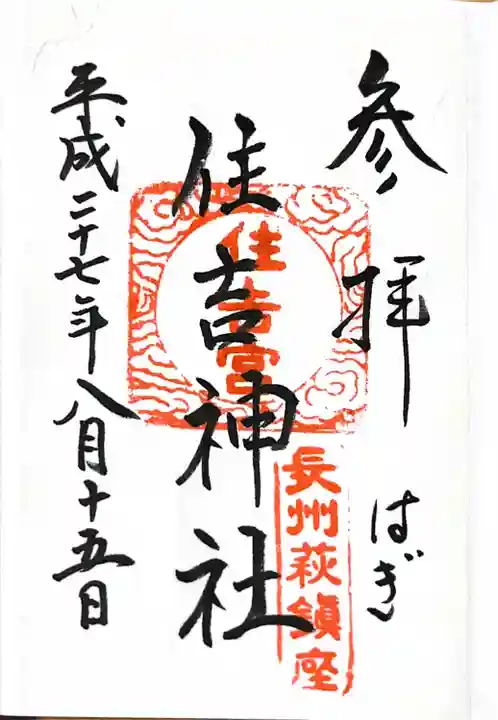 参拝 はぎ
住吉神社
住吉宮
長州萩鎮座
平成二十七年八月十五日